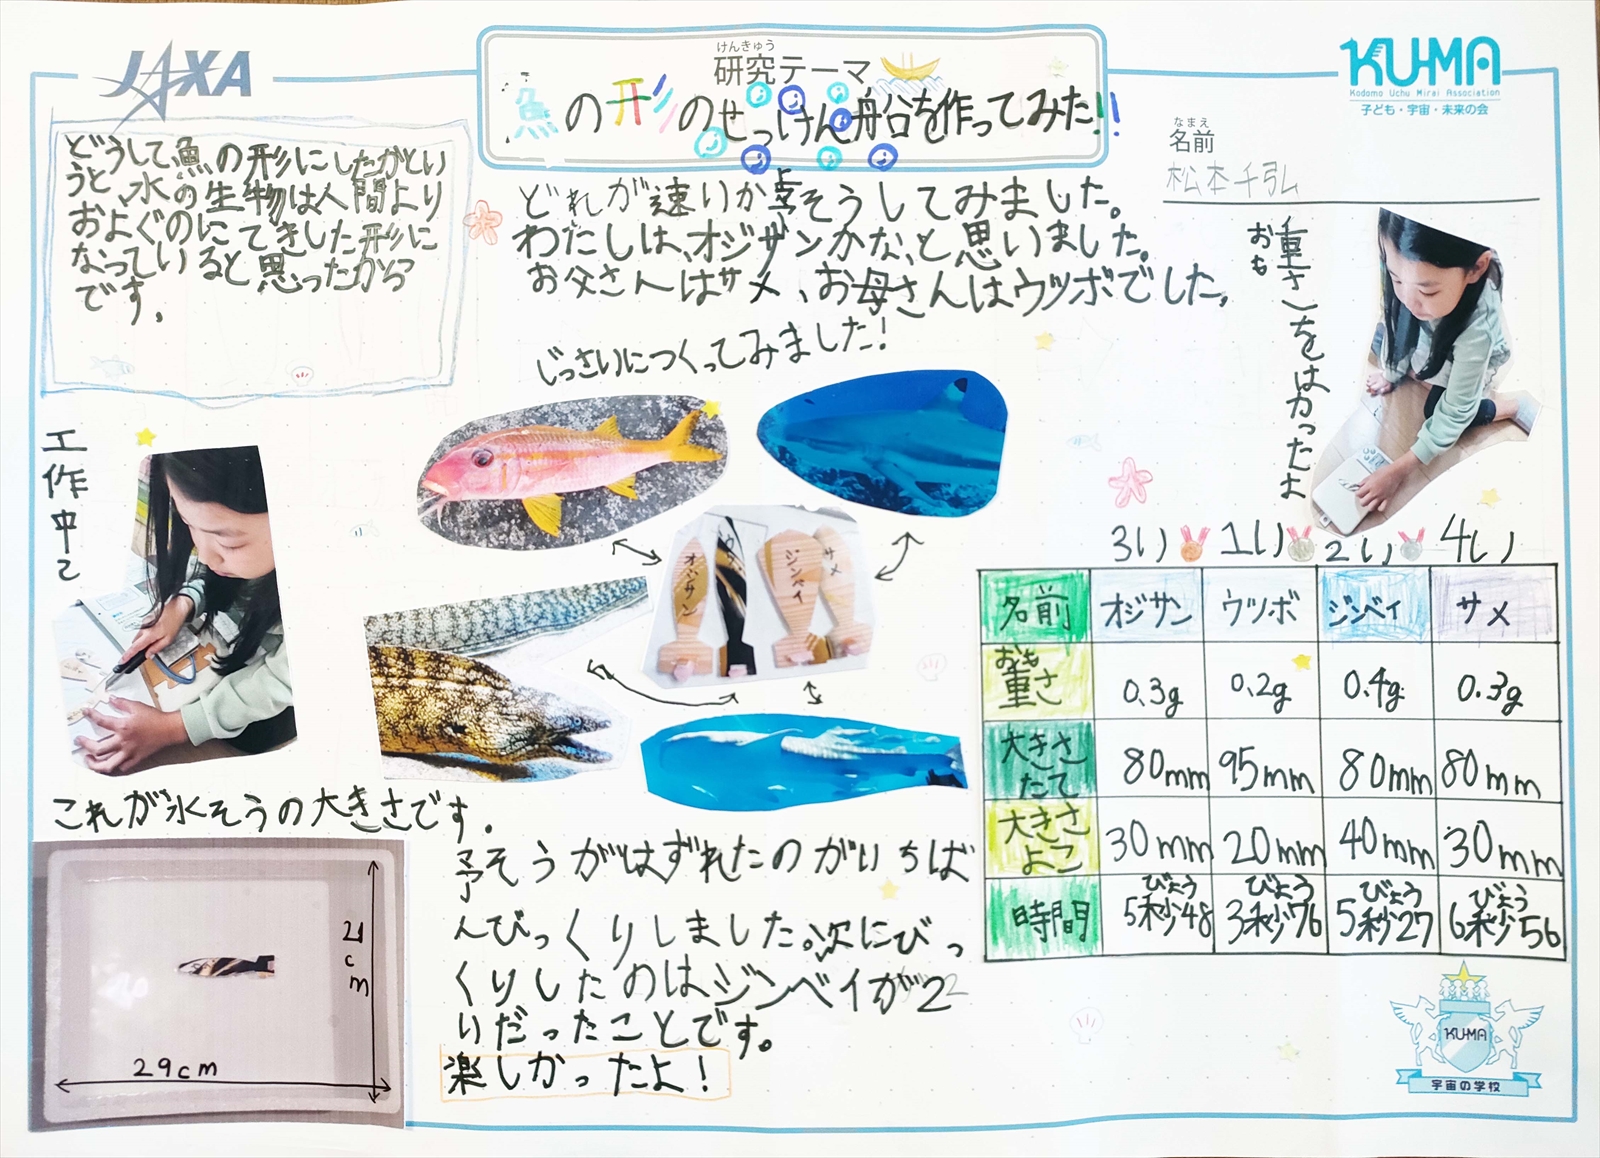 JAXA
けんきゅう
研究テーマ
魚の形のせっけん船を作ってみた!!
KU-MA
Kodomo Uchu Mirai Association
子ども・宇宙・未来の会
なまえ
名前
松本千弘
どうして、魚の形にしたかとい
うと、水の生物は人間より
およぐのにてきした形に
なっていると思ったから
です。
どれが速いか予そうしてみました。
わたしは、オジサンかな、と思いました。
お父さんはサメ、お母さんはウツボでした。
じっさいにつくってみました!
重さをはかったよ
おも
工作中
オジサン
ウツボ
ジンベイ
サメ
3い 1い 2い 4い
名前 オジサン ウツボ ジンベイ サメ
おも
重さ 0.3g 0.2g 0.4g 0.3g
大きさ
たて 80mm 95mm 80mm 80mm
大きさ
よこ 30mm 20mm 40mm 30mm
びょう びょう びょう びょう
時間 5秒48 3秒76 5秒27 6秒56
これが水そうの大きさです。
21cm
29cm
予そうがはずれたのがいちば
んびっくりしました。次にびっ
くりしたのはジンベイが2
いだったことです。
楽しかったよ!
KU-MA
宇宙の学校